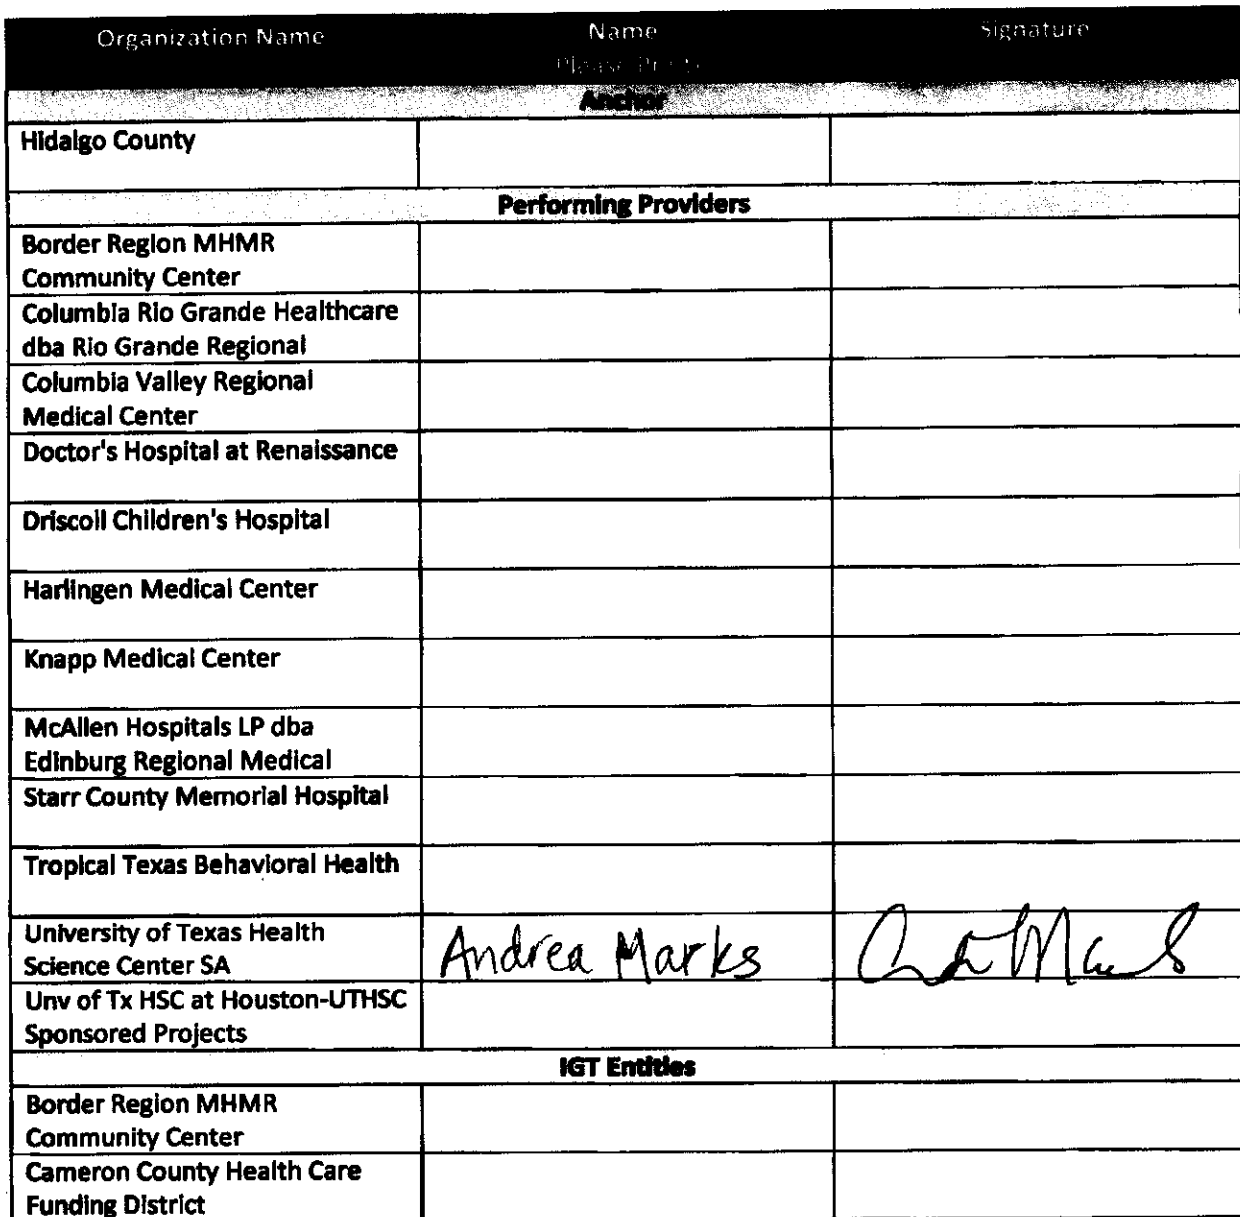 Organization Name
Name
Signature
Please Print
Anchor
Hidalgo County
Performing Providers
Border Region MHMR
Community Center
Columbia Rio Grande Healthcare
dba Rio Grande Regional
Columbia Valley Regional
Medical Center
Doctor's Hospital at Renaissance
Driscoll Children's Hospital
Harlingen Medical Center
Knapp Medical Center
McAllen Hospitals LP dba
Edinburg Regional Medical
Starr County Memorial Hospital
Tropical Texas Behavioral Health
University of Texas Health
Science Center SA
Andrea Marks
Unv of Tx HSC at Houston-UTHSC
Sponsored Projects
IGT Entities
Border Region MHMR
Community Center
Cameron County Health Care
Funding District